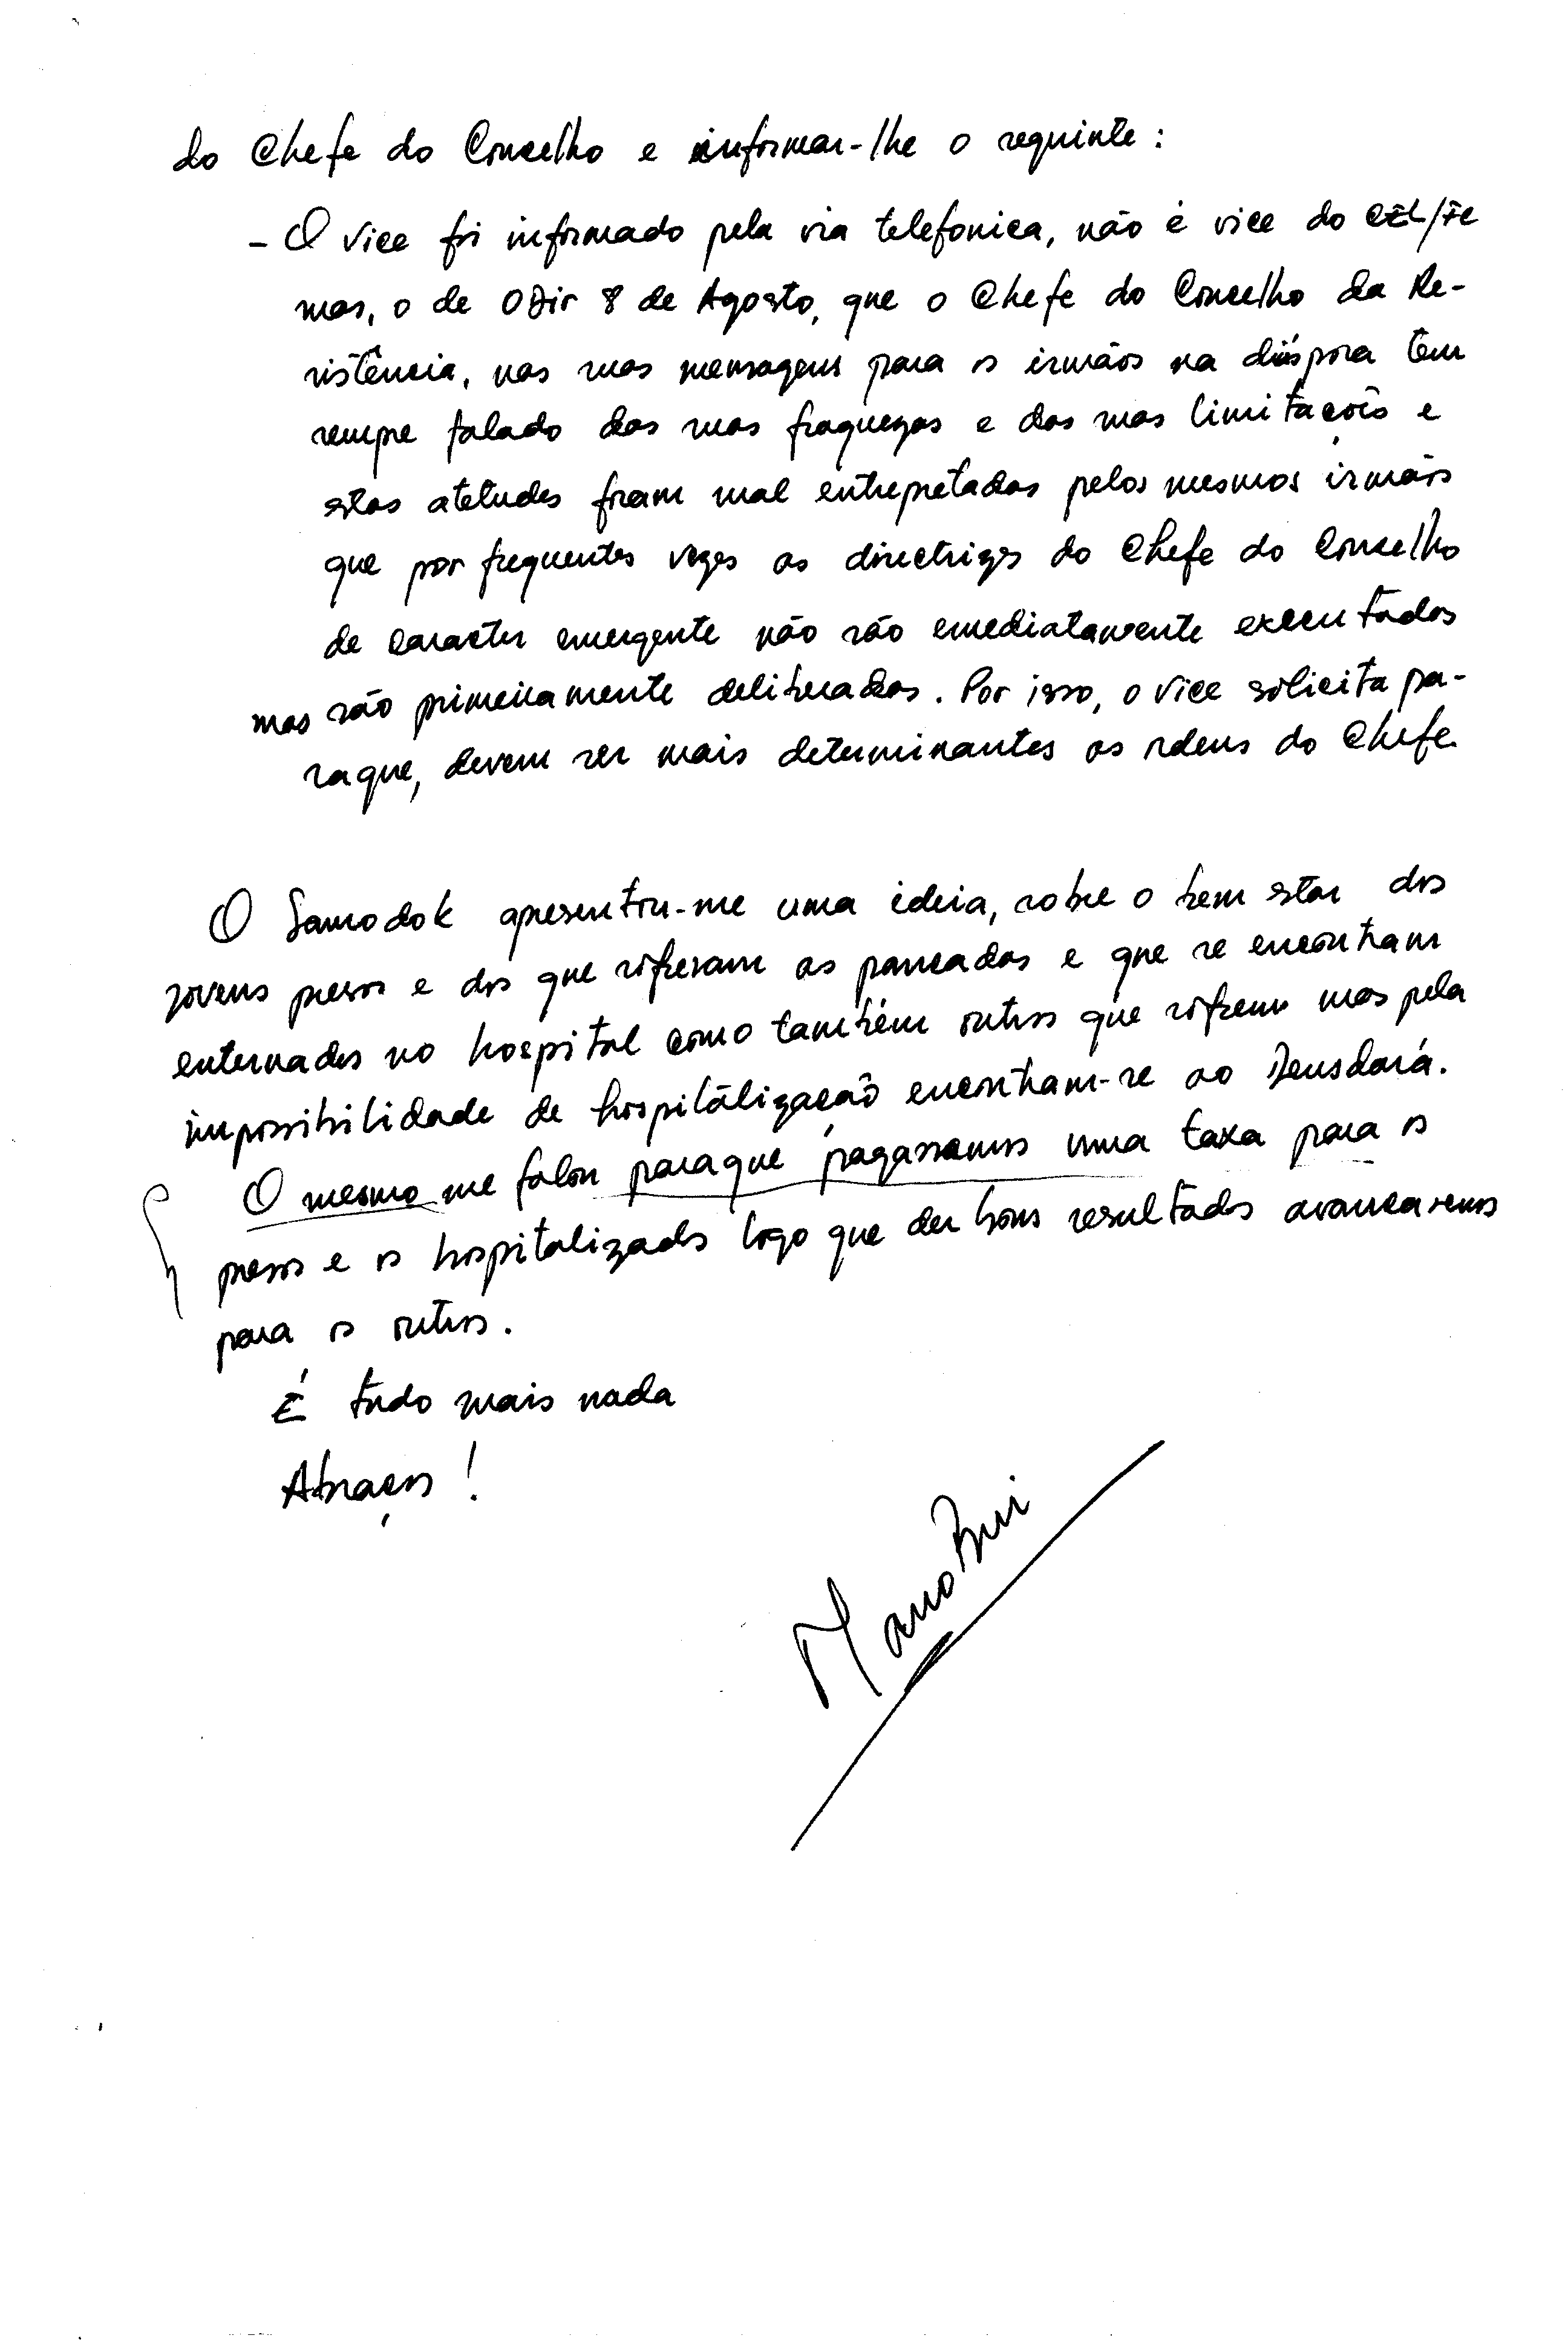 do Chefe do Concelho e informar-lhe o seguinte:
- O vice foi informado pela via telefonica, não é vice do CEL/FE
mas, o de OJir 8 de Agosto, que o Chefe do Concelho da Re-
sistência, nas suas mensagens para os irmãos na diáspora tem
sempre falado das suas fraquezas e das suas limitações e
estas atetudes foram mal entrepretadas pelos mesmos irmãos
que por frequentes vezes as directrizes do Chefe do Concelho
de caracter emergente não são emediatamente executadas
mas são primeiramente deliberadas. Por isso, o vice solicita pa-
raque, devem ser mais determinantes as ordens do Chefe.
O Samodok apresentou-me uma ideia, sobre o bem estar dos
jovens presos e dos que sofreram as pancadas e que se encontram
enternados no hospital como também outros que sofrem mas pela
impossibilidade de hospitálização encontram-se ao Deusdará.
O mesmo me falou paraque pagassemos uma taxa para os
presos e os hospitalizados logo que der bons resultados avancaremos
para os outros.
É tudo mais nada
Abraços!
Mano Bui